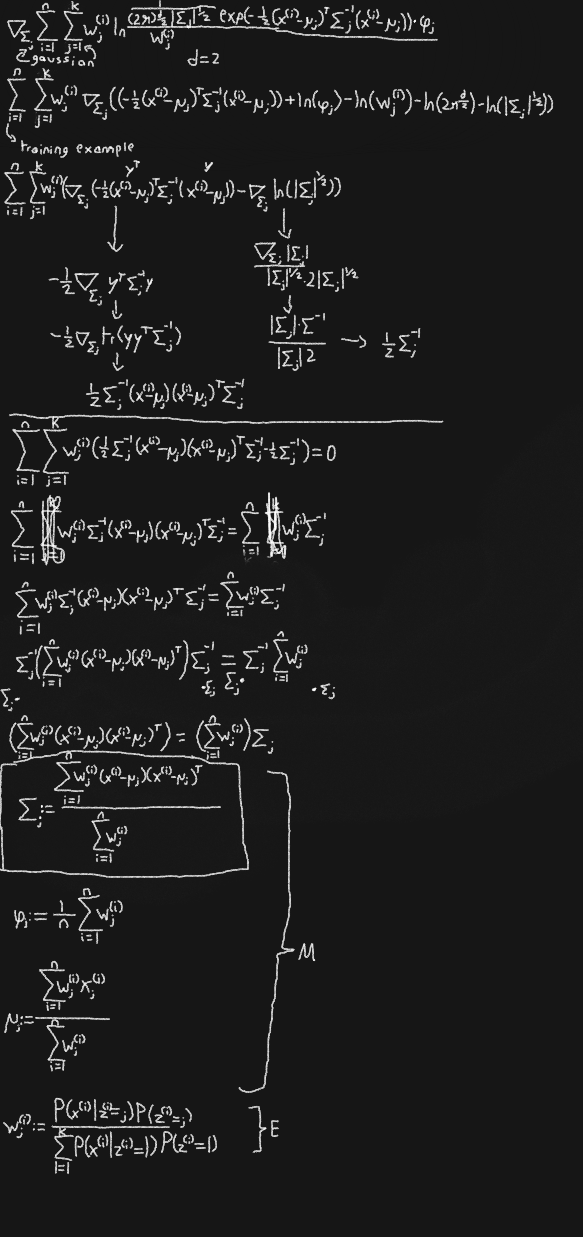 ∇_{Σ_j} Σ_{i=1}^{n} Σ_{j=1}^{k} w_j^{(i)} ln \frac{\frac{1}{(2π)^{\frac{d}{2}}|Σ_j|^{1/2}} exp(-\frac{1}{2}(x^{(i)}-μ_j)^T Σ_j^{-1}(x^{(i)}-μ_j))·φ_j}{w_j^{(i)}}
gaussian
d=2
Σ_{i=1}^{n} Σ_{j=1}^{k} w_j^{(i)} ∇_{Σ_j}((-\frac{1}{2}(x^{(i)}-μ_j)^T Σ_j^{-1}(x^{(i)}-μ_j))+ln(φ_j)-ln(w_j^{(i)})-ln(2π^{\frac{d}{2}})-ln(|Σ_j|^{\frac{1}{2}}))
training example
y^T y
Σ_{i=1}^{n} Σ_{j=1}^{k} w_j^{(i)}(∇_{Σ_j}(-\frac{1}{2}(x^{(i)}-μ_j)^T Σ_j^{-1}(x^{(i)}-μ_j))-∇_{Σ_j} ln(|Σ_j|^{1/2}))
↓ ↓
-\frac{1}{2}∇_{Σ_j} y^T Σ_j^{-1} y
\frac{∇_{Σ_j}|Σ_j|}{|Σ_j|^{1/2}·2|Σ_j|^{1/2}}
↓ ↓
-\frac{1}{2}∇_{Σ_j} tr(yy^T Σ_j^{-1})
\frac{|Σ_j|·Σ^{-1}}{|Σ_j|2} → \frac{1}{2}Σ_j^{-1}
↓
\frac{1}{2}Σ_j^{-1}(x^{(i)}-μ_j)(x^{(i)}-μ_j)^T Σ_j^{-1}
Σ_{i=1}^{n} Σ_{j=1}^{k} w_j^{(i)}(\frac{1}{2}Σ_j^{-1}(x^{(i)}-μ_j)(x^{(i)}-μ_j)^T Σ_j^{-1}-\frac{1}{2}Σ_j^{-1})=0
Σ_{i=1}^{n} w_j^{(i)}Σ_j^{-1}(x^{(i)}-μ_j)(x^{(i)}-μ_j)^T Σ_j^{-1}=Σ_{i=1}^{n} w_j^{(i)}Σ_j^{-1}
Σ_{i=1}^{n} w_j^{(i)}Σ_j^{-1}(x^{(i)}-μ_j)(x^{(i)}-μ_j)^T Σ_j^{-1}=Σ_{i=1}^{n} w_j^{(i)}Σ_j^{-1}
Σ_j^{-1}(Σ_{i=1}^{n} w_j^{(i)}(x^{(i)}-μ_j)(x^{(i)}-μ_j)^T)Σ_j^{-1}=Σ_j^{-1} Σ_{i=1}^{n} w_j^{(i)}
Σ_j· ·Σ_j Σ_j· ·Σ_j
(Σ_{i=1}^{n} w_j^{(i)}(x^{(i)}-μ_j)(x^{(i)}-μ_j)^T)=(Σ_{i=1}^{n} w_j^{(i)})Σ_j
Σ_j:=\frac{Σ_{i=1}^{n} w_j^{(i)}(x^{(i)}-μ_j)(x^{(i)}-μ_j)^T}{Σ_{i=1}^{n} w_j^{(i)}}
φ_j:=\frac{1}{n}Σ_{i=1}^{n} w_j^{(i)}
M
μ_j:=\frac{Σ_{i=1}^{n} w_j^{(i)}x_j^{(i)}}{Σ_{i=1}^{n} w_j^{(i)}}
w_j^{(i)}:=\frac{P(x^{(i)}|z^{(i)}=j)P(z^{(i)}=j)}{Σ_{l=1}^{k} P(x^{(i)}|z^{(i)}=l)P(z^{(i)}=l)} }E